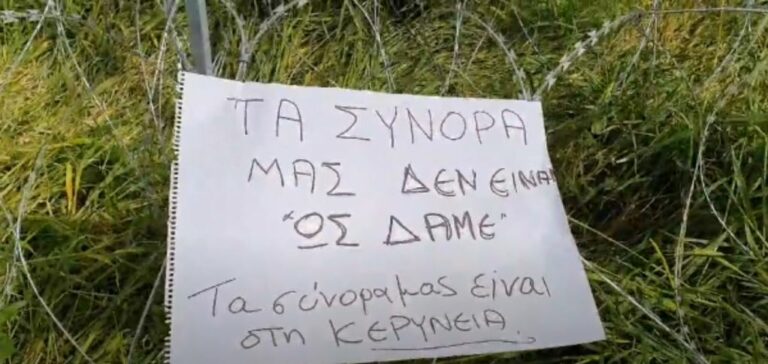 ΤΑ ΣΥΝΟΡΑ
ΜΑΣ ΔΕΝ ΕΙΝΑΙ
"ΩΣ ΔΑΜΕ"
Τα σύνορα μας είναι
στη ΚΕΡΥΝΕΙΑ.